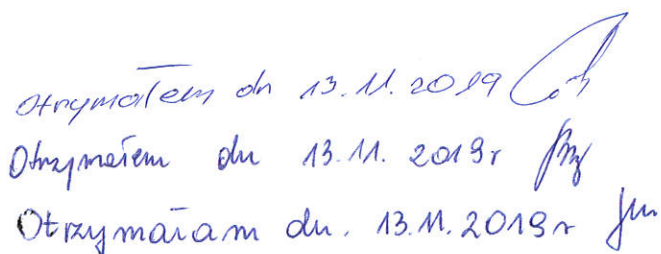 Otrzymałem dn 13.11.2019
Otrzymałem dn 13.11.2019r
Otrzymałam dn. 13.11.2019r